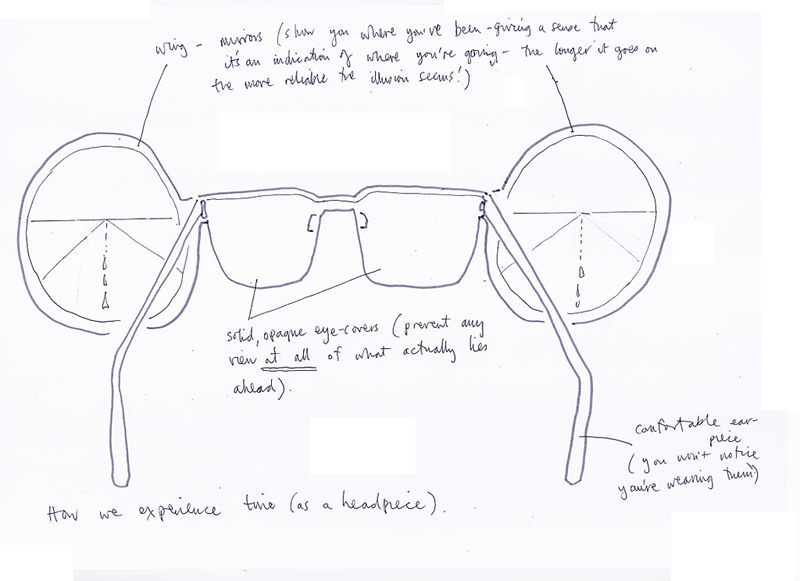 wing - mirrors (show you where you've been - giving a sense that
it's an indication of where you're going - the longer it goes on
the more reliable the illusion seems!)
solid, opaque eye-covers (prevent any
view at all of what actually lies
ahead).
comfortable ear-
piece
(you won't notice
you're wearing them!)
How we experience time (as a headpiece).